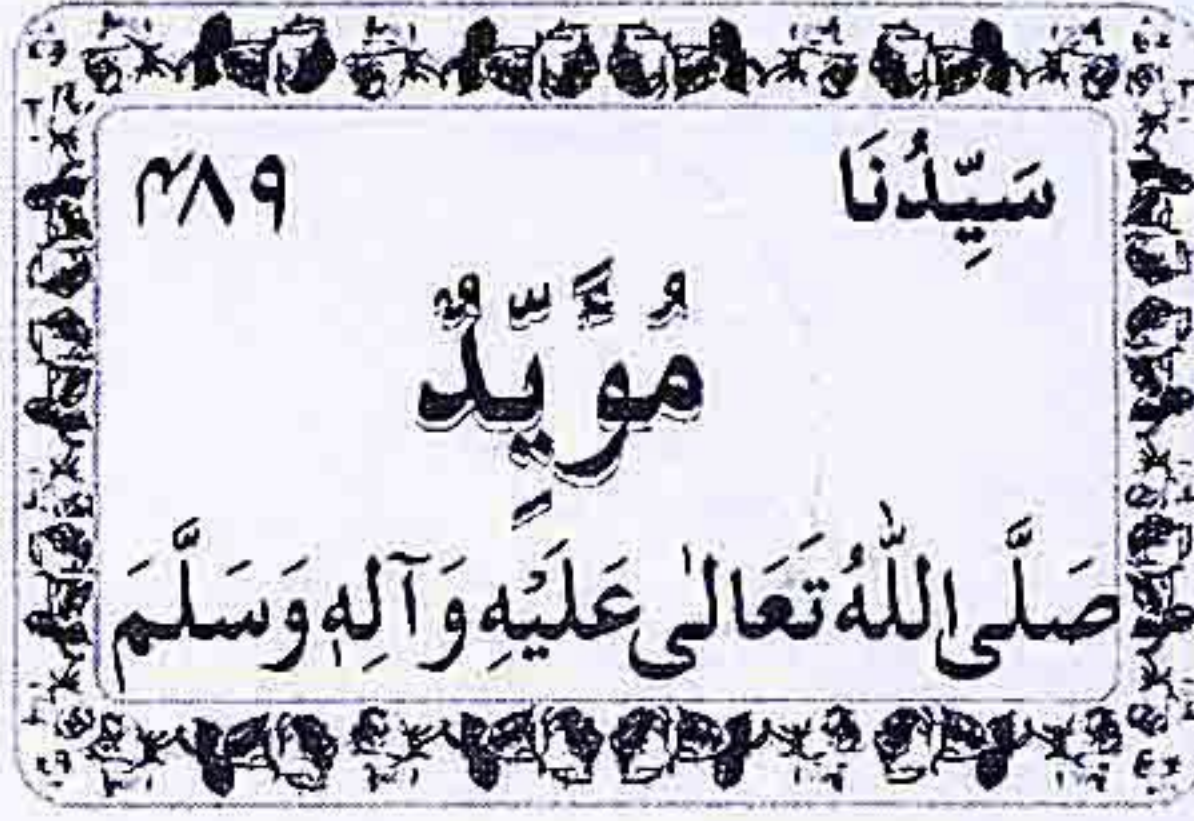 سَيِّدُنَا ۴۸۹
مُؤَيِّدٌ
صَلَّى اللّٰهُ تَعَالٰى عَلَيْهِ وَآلِهٖ وَسَلَّمَ